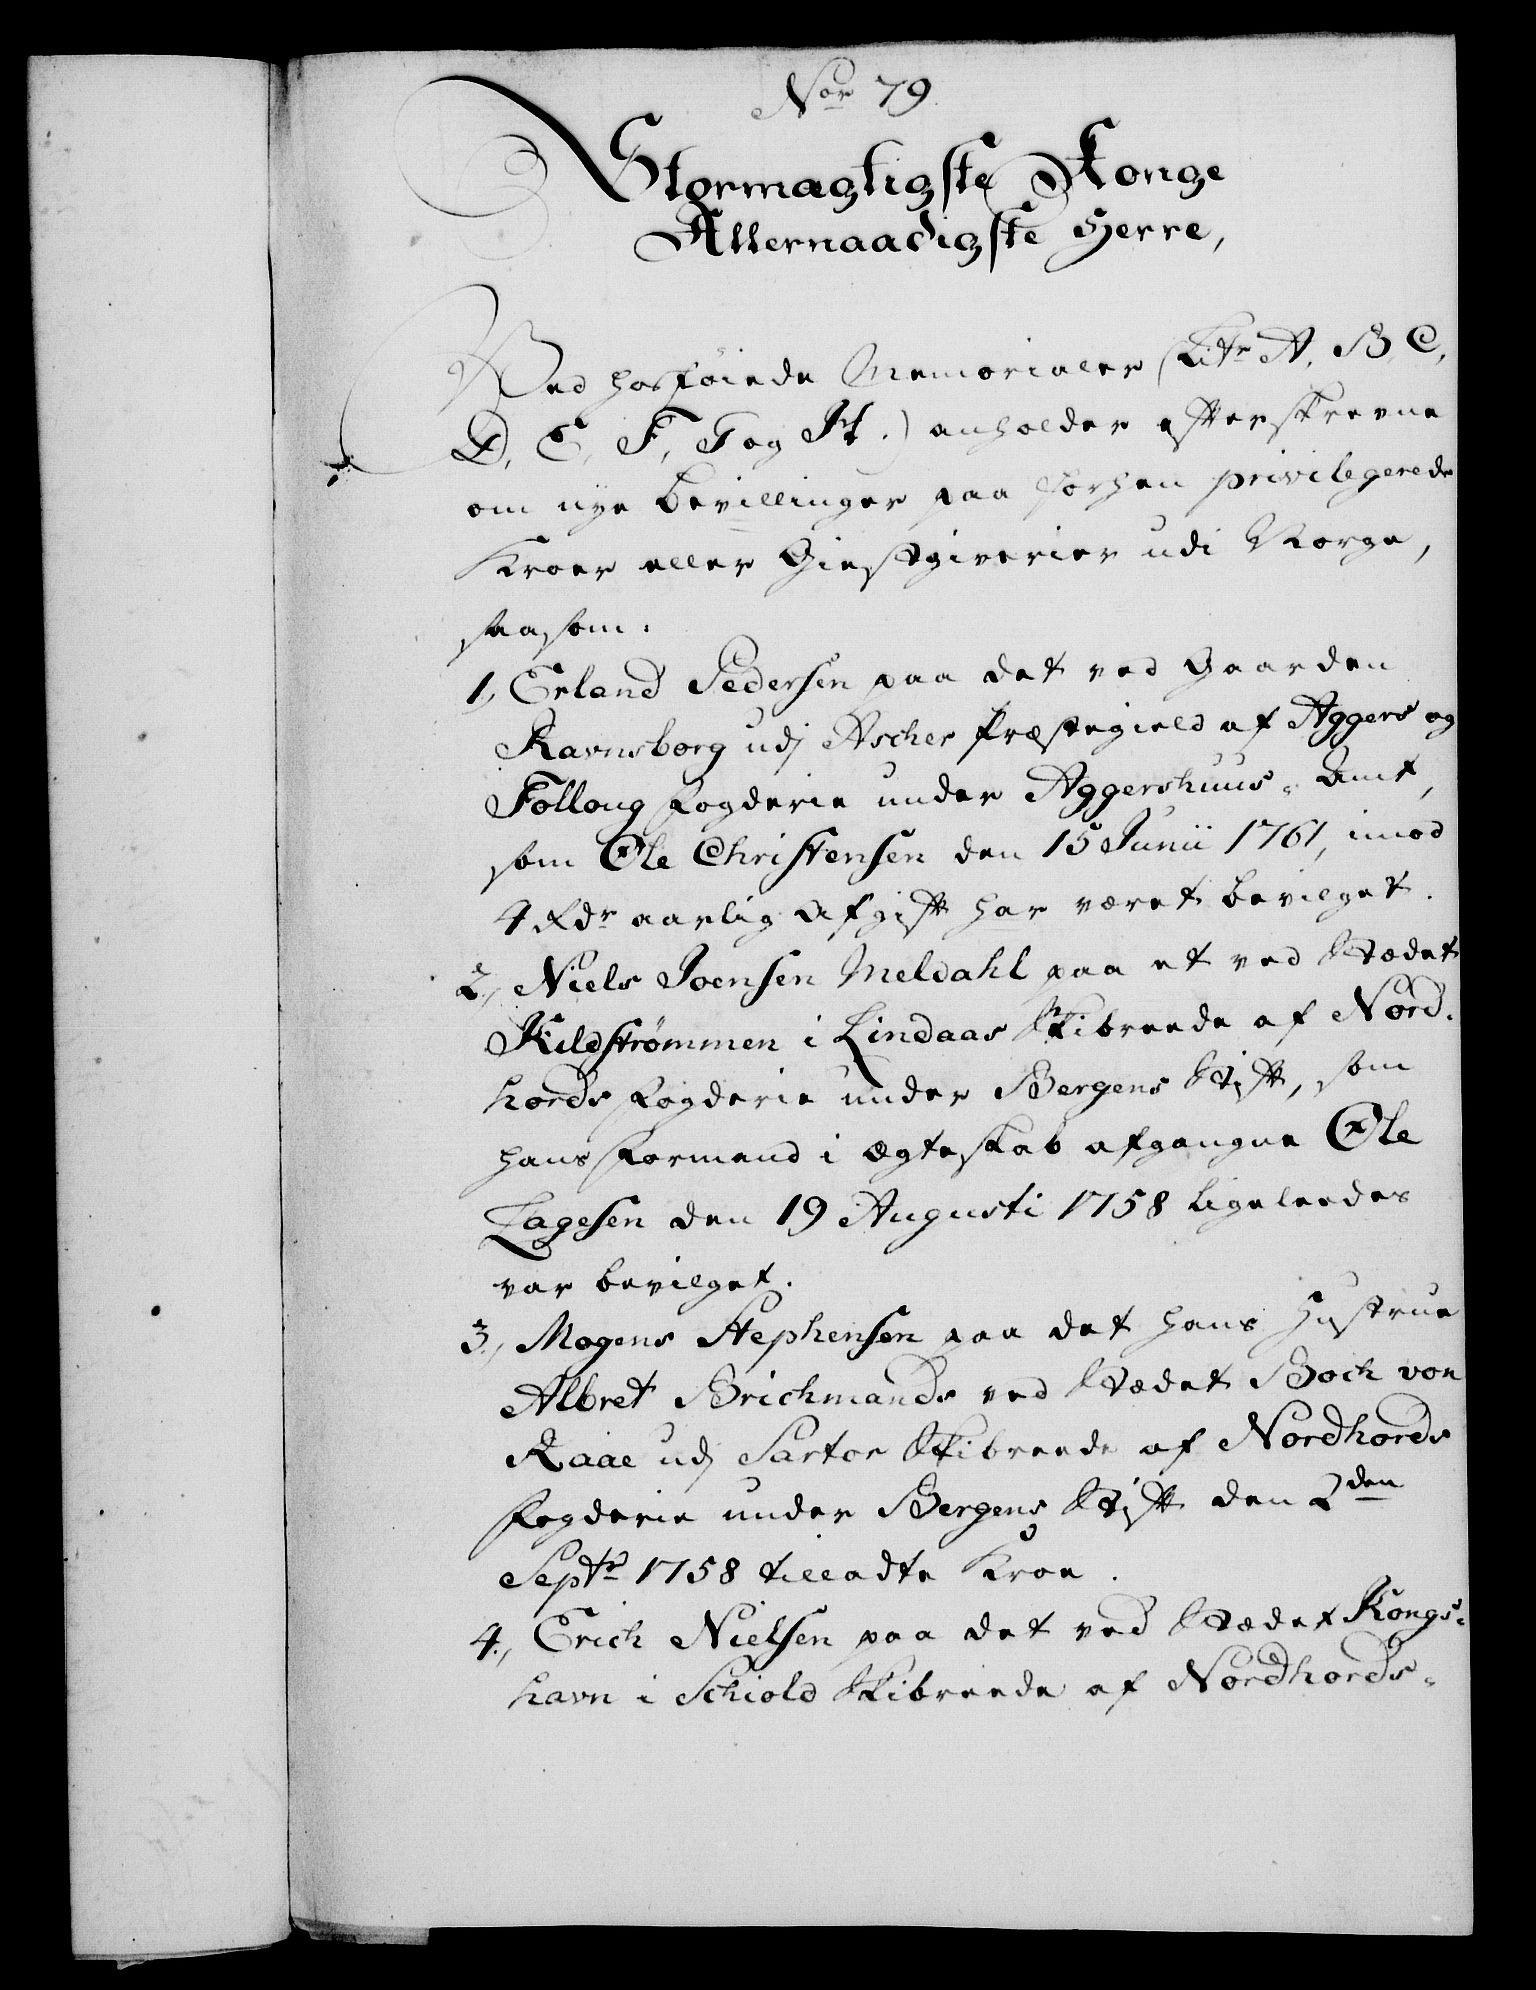 Nor 79
Stormægtigste Konge
Allernaadigste Herre,
Ved hosføiede Memorialer (Litr A, B, C,
D, E, F, G og H.) anholder efterskrevne
om nye bevillinger paa forhen privilegerede
Kroer eller Giestgiverier udi Norge,
saasom:
1, Erland Pedersen paa det ved Gaarden
Ravnsborg udj Ascher Præstegield af Aggers og
Folloug Fogderie under Aggershuus-Amt,
som Ole Christensen den 15 Junii 1761, imod
4 Rdr aarlig Afgift har været bevilget.
2., Niels Joensen Meldahl paa et ved Stædet
Kildstrømmen i Lindaas Skibreede af Nord-
hords Fogderie under Bergens Stift, som
hans Formand i Ægteskab afgangne Ole
Lagesen den 19 Augusti 1758 ligeleedes
var bevilget.
3., Mogens Stephensen paa det hans Hustrue
Albret Brichmands ved Stædet Boch von
Raae udj Sartor Skibreede af Nordhords
Fogderie under Bergens Stift den 2den
Septr 1758 tilladte Kroe.
4., Erich Nielsen paa det ved Stædet Kongs-
havn i Schiold Skibreede af Nordhords-